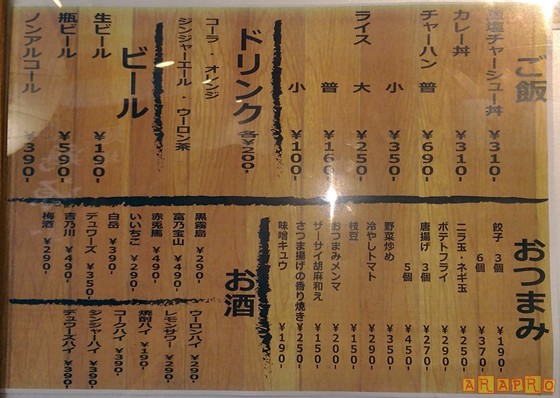 ご飯
塩チャーシュー丼 ¥310-
カレー丼 ¥310-
チャーハン 普 ¥690-
小 ¥350-
ライス 大 ¥250-
普 ¥160-
小 ¥100-
ドリンク 各¥200-
コーラ・オレンジ
ジンジャーエール・ウーロン茶
ビール
生ビール ¥190-
瓶ビール ¥590-
ノンアルコール ¥390-
おつまみ
餃子 3個 ¥190-
6個 ¥370-
ニラ玉・ネギ玉 ¥250-
ポテトフライ ¥290-
唐揚げ 3個 ¥270-
5個 ¥450-
野菜炒め ¥350-
冷やしトマト ¥290-
枝豆 ¥150-
おつまみメンマ ¥200-
ザーサイ胡麻和え ¥150-
さつま揚げの香り焼き ¥250-
味噌キュウ ¥190-
お酒
黒霧島 ¥290-
富乃宝山 ¥490-
赤兎馬 ¥490-
いいちこ ¥290-
白岳 ¥390-
デュワーズ ¥350-
吉乃川 ¥490-
梅酒 ¥290-
ウーロンハイ ¥290-
レモンサワー ¥290-
焼酎ハイ ¥190-
コークハイ ¥390-
ジンジャーハイ ¥390-
デュワーズハイ ¥390-
ARAPRO